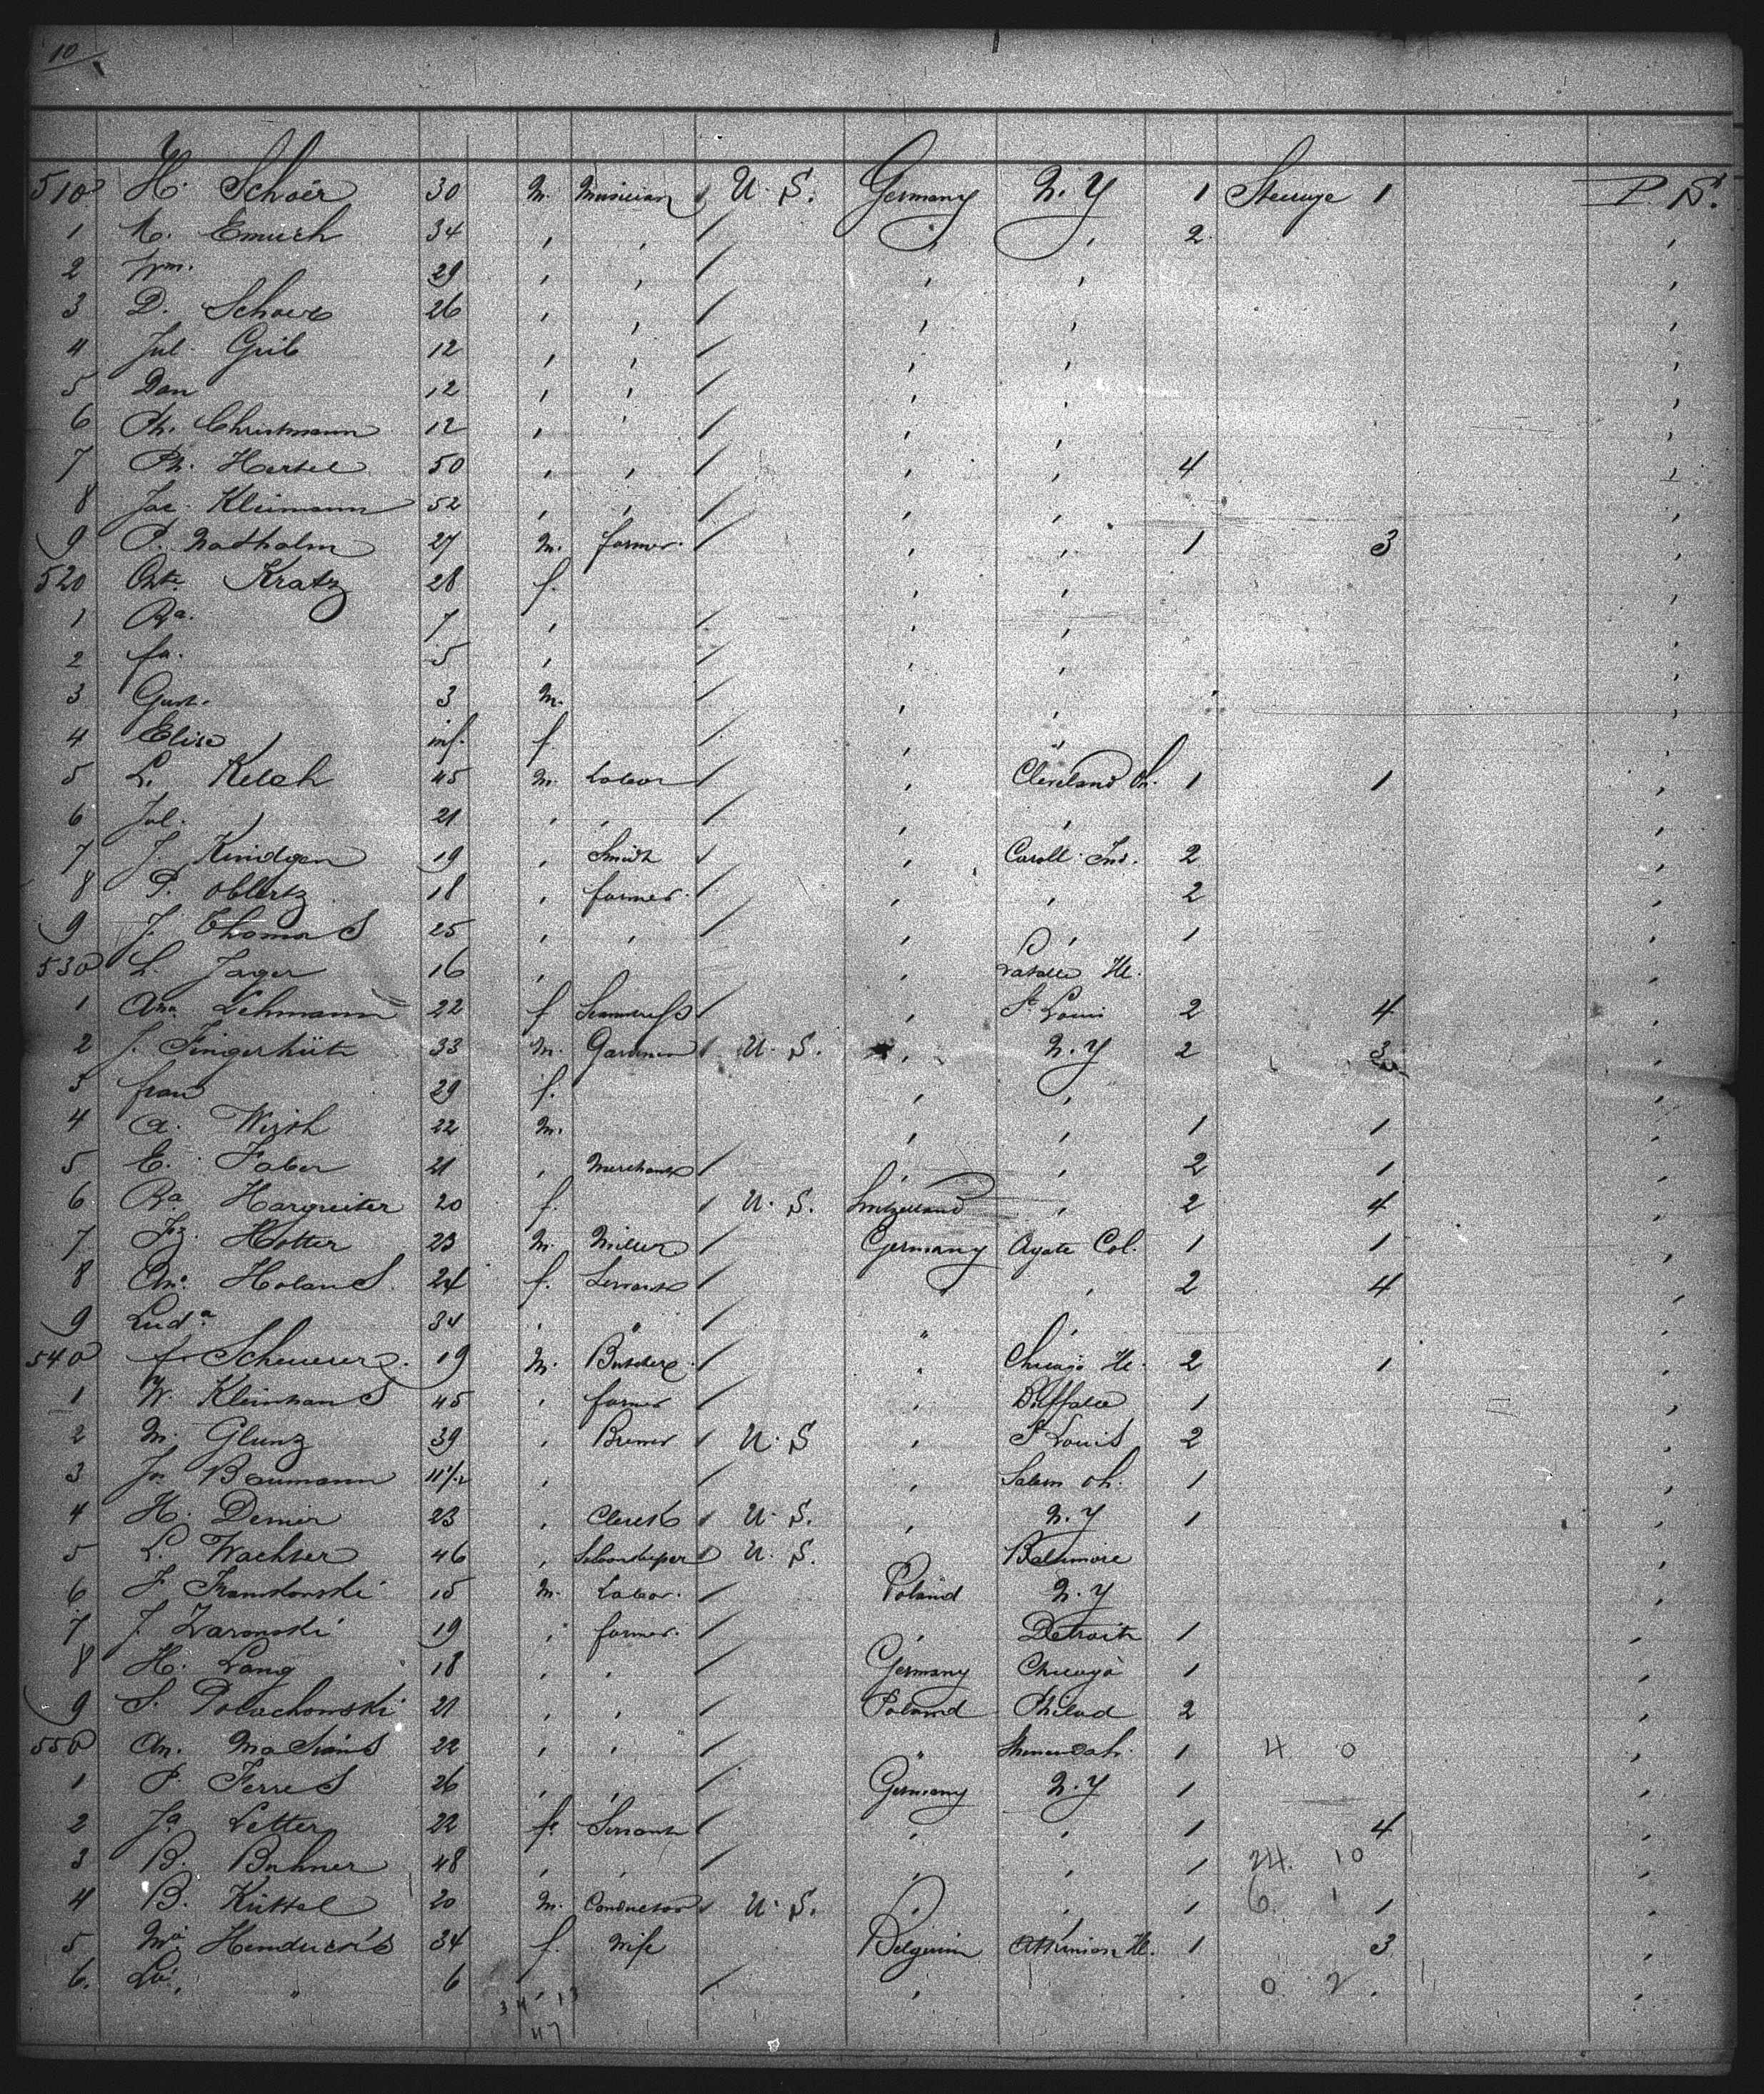 10
510 H. Schoer 30 M. Musician U. S. Germany N. Y 1 Steerage 1 P. S.
1 A. Emrich 34 , , , , 2 ,
2 Wm. 29 , , , , ,
3 D. 26 , , , , ,
4 Jul. Grib 12 , , , , ,
5 Dan 12 , , , , ,
6 Ph. Christmann 12 , , , , ,
7 Ph. Hertel 50 , , , , 4 ,
8 Jac. Kleimann 52 , , , , ,
9 P. Nodholm 27 M. farmer , , 1 3 ,
520 Kratz 28 f. , , ,
1 Ra. 7 , , , ,
2 fa. 5 , , , ,
3 Gust. 3 M. , , ,
4 Elise inf. f. , " ,
5 L. Kelch 45 M. Labor , Cleveland Oh. 1 1 ,
6 Jul. 21 , , , , ,
7 J. Kindgen 19 , Smith , Caroll Ind. 2 ,
8 P. Oblertz 18 , farmer , , 2 ,
9 J. Thomas 25 , , , , 1 ,
530 L. Jager 16 , , Lasalle Ill. ,
1 Ana Lehmann 22 f Seamstress , St Louis 2 4 ,
2 J. Fingerhüt 33 M. Gardener U. S. , N. Y 2 3 ,
3 frau 29 f. , , ,
4 A. Wirth 22 M. , , 1 1 ,
5 E. Faber 21 , Merchant , , 2 1 ,
6 Ra. Hargreiter 20 f. U. S. Switzerland , 2 4 ,
7 Fz. Hotter 23 M. Miller Germany Agate Col. 1 1 ,
8 Holans 24 f. Servant " , 2 4 ,
9 Luda 34 , " " , ,
540 f. Scheuerer 19 M. Butcher , Chicago Ill. 2 1 ,
1 W. Kleinhans 45 , farmer , Buffalo 1 ,
2 M. Glunz 39 , Brewer U. S , St Louis 2 ,
3 Jos Baumann 11 1/2 , , Salem Oh. 1 ,
4 H. Demer 23 , Clerk U. S. , N. Y 1 ,
5 L. Wachter 46 , Saloonkeeper U. S. Baltimore ,
6 F. 15 M. Labor. Poland N. Y ,
7 J. Zaronski 19 , farmer , Detroit 1 ,
8 H. Lang 18 , , Germany Chicago 1 ,
9 S. Polachowski 21 , , Poland Philad 2 ,
550 An. 22 , , " 1 4 0 ,
1 P. Ferres 26 , , Germany N. Y 1 ,
2 Ja. Letter 22 f. Servant , , 1 4 ,
3 B. Buhner 48 , , , , 1 24. 10 ,
4 B. Küttel 20 M. Conductor U. S. , , 1 6 1 1 ,
5 Ma 34 f. Wife Belgium Ill. 1 3 ,
6. " 6 , , 0 2 ,
34 13
47